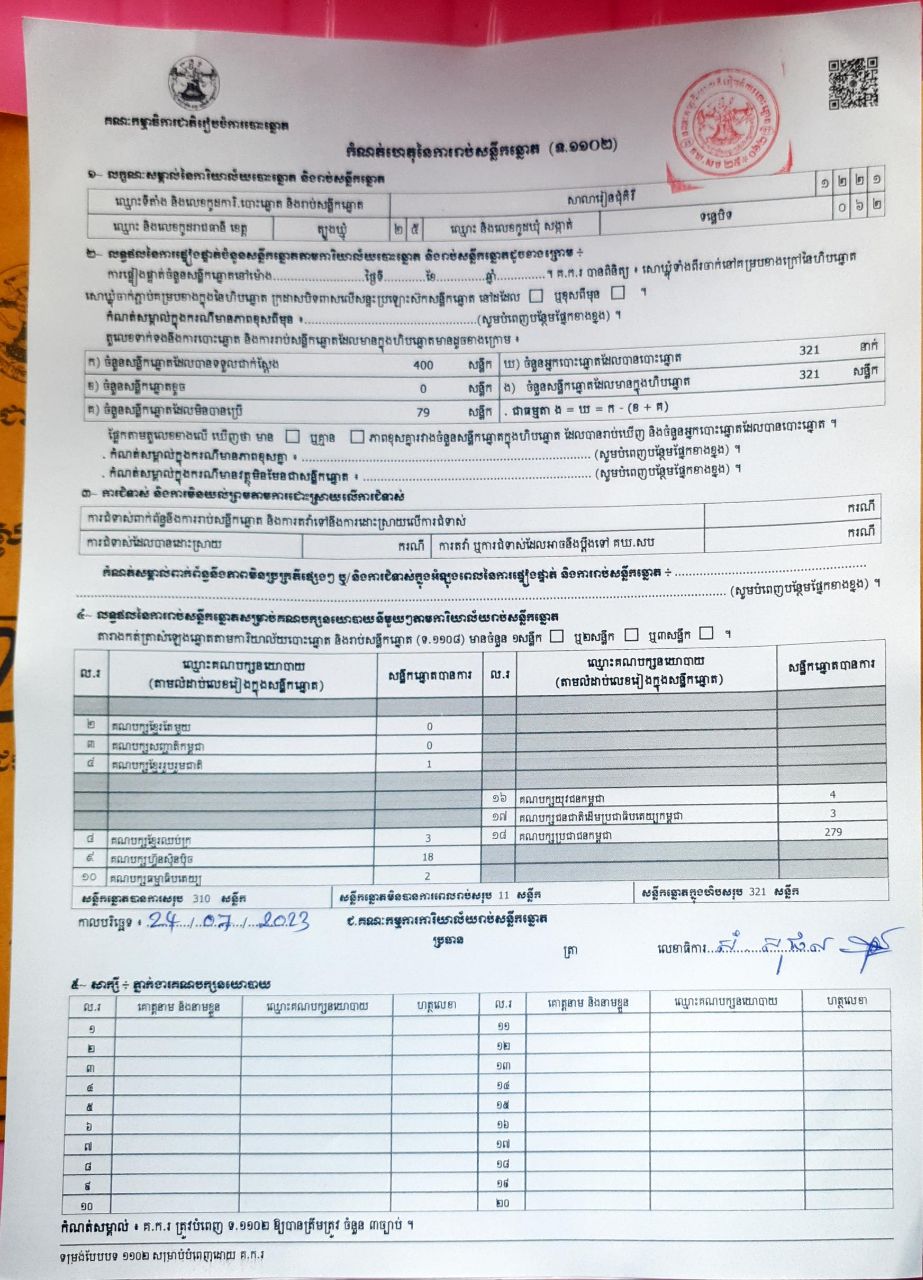 គណៈកម្មាធិការជាតិរៀបចំការបោះឆ្នោត
កំណត់ហេតុនៃការរាប់សន្លឹកឆ្នោត (ទ.១១០២)
១~ លក្ខណៈសម្គាល់នៃការិយាល័យបោះឆ្នោត និងរាប់សន្លឹកឆ្នោត
ឈ្មោះទីតាំង និងលេខកូដការិ.បោះឆ្នោត និងរាប់សន្លឹកឆ្នោត សាលារៀនជុំគិរី ១ ២ ២ ១
ឈ្មោះ និងលេខកូដរាជធានី ខេត្ត ត្បូងឃ្មុំ ២ ៥ ឈ្មោះ និងលេខកូដឃុំ សង្កាត់ ទន្លេបិទ ០ ៦ ២
២~ លទ្ធផលនៃការផ្ទៀងផ្ទាត់ចំនួនសន្លឹកឆ្នោតតាមការិយាល័យបោះឆ្នោត និងរាប់សន្លឹកឆ្នោតដូចខាងក្រោម ÷
ការផ្ទៀងផ្ទាត់ចំនួនសន្លឹកឆ្នោតនៅម៉ោង....................ថ្ងៃទី............ខែ............ឆ្នាំ............។ គ.ក.រ បានពិនិត្យ ៖ សោឃ្លុំទាំងពីរចាក់នៅគម្របខាងក្រៅនៃហិបឆ្នោត
សោឃ្លុំចាក់ភ្ជាប់គម្របខាងក្នុងនៃហិបឆ្នោត ក្រដាសបិទពាសលើសន្ទះប្រឡោះស៊កសន្លឹកឆ្នោត នៅដដែល ☐ ឬខុសពីមុន ☐ ។
កំណត់សម្គាល់ក្នុងករណីមានភាពខុសពីមុន ៖........................................(សូមបំពេញបន្ថែមផ្នែកខាងខ្នង) ។
តួលេខទាក់ទងនឹងការបោះឆ្នោត និងការរាប់សន្លឹកឆ្នោតដែលមានក្នុងហិបឆ្នោតមានដូចខាងក្រោម ៖
ក) ចំនួនសន្លឹកឆ្នោតដែលបានទទួលជាក់ស្តែង 400 សន្លឹក ឃ) ចំនួនអ្នកបោះឆ្នោតដែលបានបោះឆ្នោត 321 នាក់
ខ) ចំនួនសន្លឹកឆ្នោតខូច 0 សន្លឹក ង) ចំនួនសន្លឹកឆ្នោតដែលមានក្នុងហិបឆ្នោត 321 សន្លឹក
គ) ចំនួនសន្លឹកឆ្នោតដែលមិនបានប្រើ 79 សន្លឹក . ជាធម្មតា ង = ឃ = ក - (ខ + គ)
ផ្អែកតាមតួលេខខាងលើ ឃើញថា មាន ☐ ឬគ្មាន ☐ ភាពខុសគ្នារវាងចំនួនសន្លឹកឆ្នោតក្នុងហិបឆ្នោត ដែលបានរាប់ឃើញ និងចំនួនអ្នកបោះឆ្នោតដែលបានបោះឆ្នោត ។
. កំណត់សម្គាល់ក្នុងករណីមានភាពខុសគ្នា ៖ ........................................ (សូមបំពេញបន្ថែមផ្នែកខាងខ្នង) ។
. កំណត់សម្គាល់ក្នុងករណីមានវត្ថុមិនមែនជាសន្លឹកឆ្នោត ៖ ........................................ (សូមបំពេញបន្ថែមផ្នែកខាងខ្នង) ។
៣~ ការជំទាស់ និងការមិនយល់ព្រមតាមការដោះស្រាយលើការជំទាស់
ការជំទាស់ពាក់ព័ន្ធនឹងការរាប់សន្លឹកឆ្នោត និងការតវ៉ាទៅនឹងការដោះស្រាយលើការជំទាស់ ករណី
ការជំទាស់ដែលបានដោះស្រាយ ករណី ការតវ៉ា ឬការជំទាស់ដែលអាចនឹងប្តឹងទៅ គឃ.សប ករណី
កំណត់សម្គាល់ពាក់ព័ន្ធនឹងភាពមិនប្រក្រតីផ្សេងៗ ឬ/និងការជំទាស់ក្នុងអំឡុងពេលនៃការផ្ទៀងផ្ទាត់ និងការរាប់សន្លឹកឆ្នោត ÷ ....................
........................................ (សូមបំពេញបន្ថែមផ្នែកខាងខ្នង) ។
៤~ លទ្ធផលនៃការរាប់សន្លឹកឆ្នោតសម្រាប់គណបក្សនយោបាយនីមួយៗតាមការិយាល័យរាប់សន្លឹកឆ្នោត
តារាងកត់ត្រាសំឡេងឆ្នោតតាមការិយាល័យបោះឆ្នោត និងរាប់សន្លឹកឆ្នោត (ទ.១១០៨) មានចំនួន ១សន្លឹក ☐ ឬ២សន្លឹក ☐ ឬ៣សន្លឹក ☐ ។
ល.រ ឈ្មោះគណបក្សនយោបាយ (តាមលំដាប់លេខរៀងក្នុងសន្លឹកឆ្នោត) សន្លឹកឆ្នោតបានការ ល.រ ឈ្មោះគណបក្សនយោបាយ (តាមលំដាប់លេខរៀងក្នុងសន្លឹកឆ្នោត) សន្លឹកឆ្នោតបានការ
២ គណបក្សខ្មែរតែមួយ 0
៣ គណបក្សសញ្ជាតិកម្ពុជា 0
៤ គណបក្សខ្មែររួបរួមជាតិ 1
១៦ គណបក្សយុវជនកម្ពុជា 4
១៧ គណបក្សជនជាតិដើមប្រជាធិបតេយ្យកម្ពុជា 3
៨ គណបក្សខ្មែរឈប់ក្រ 3 ១៨ គណបក្សប្រជាជនកម្ពុជា 279
៩ គណបក្សហ៊្វុនស៊ិនប៉ិច 18
១០ គណបក្សធម្មាធិបតេយ្យ 2
សន្លឹកឆ្នោតបានការសរុប 310 សន្លឹក សន្លឹកឆ្នោតមិនបានការពេលរាប់សរុប 11 សន្លឹក សន្លឹកឆ្នោតក្នុងហិបសរុប 321 សន្លឹក
កាលបរិច្ឆេទ ៖ 24/07/2023 ជ.គណៈកម្មការការិយាល័យរាប់សន្លឹកឆ្នោត
ប្រធាន ត្រា លេខាធិការ
៥~ សាក្សី ÷ ភ្នាក់ងារគណបក្សនយោបាយ
ល.រ គោត្តនាម និងនាមខ្លួន ឈ្មោះគណបក្សនយោបាយ ហត្ថលេខា ល.រ គោត្តនាម និងនាមខ្លួន ឈ្មោះគណបក្សនយោបាយ ហត្ថលេខា
១ ១១
២ ១២
៣ ១៣
៤ ១៤
៥ ១៥
៦ ១៦
៧ ១៧
៨ ១៨
៩ ១៩
១០ ២០
កំណត់សម្គាល់ ៖ គ.ក.រ ត្រូវបំពេញ ទ.១១០២ ឱ្យបានត្រឹមត្រូវ ចំនួន ៣ច្បាប់ ។
ទម្រង់បែបបទ ១១០២ សម្រាប់បំពេញដោយ គ.ក.រ